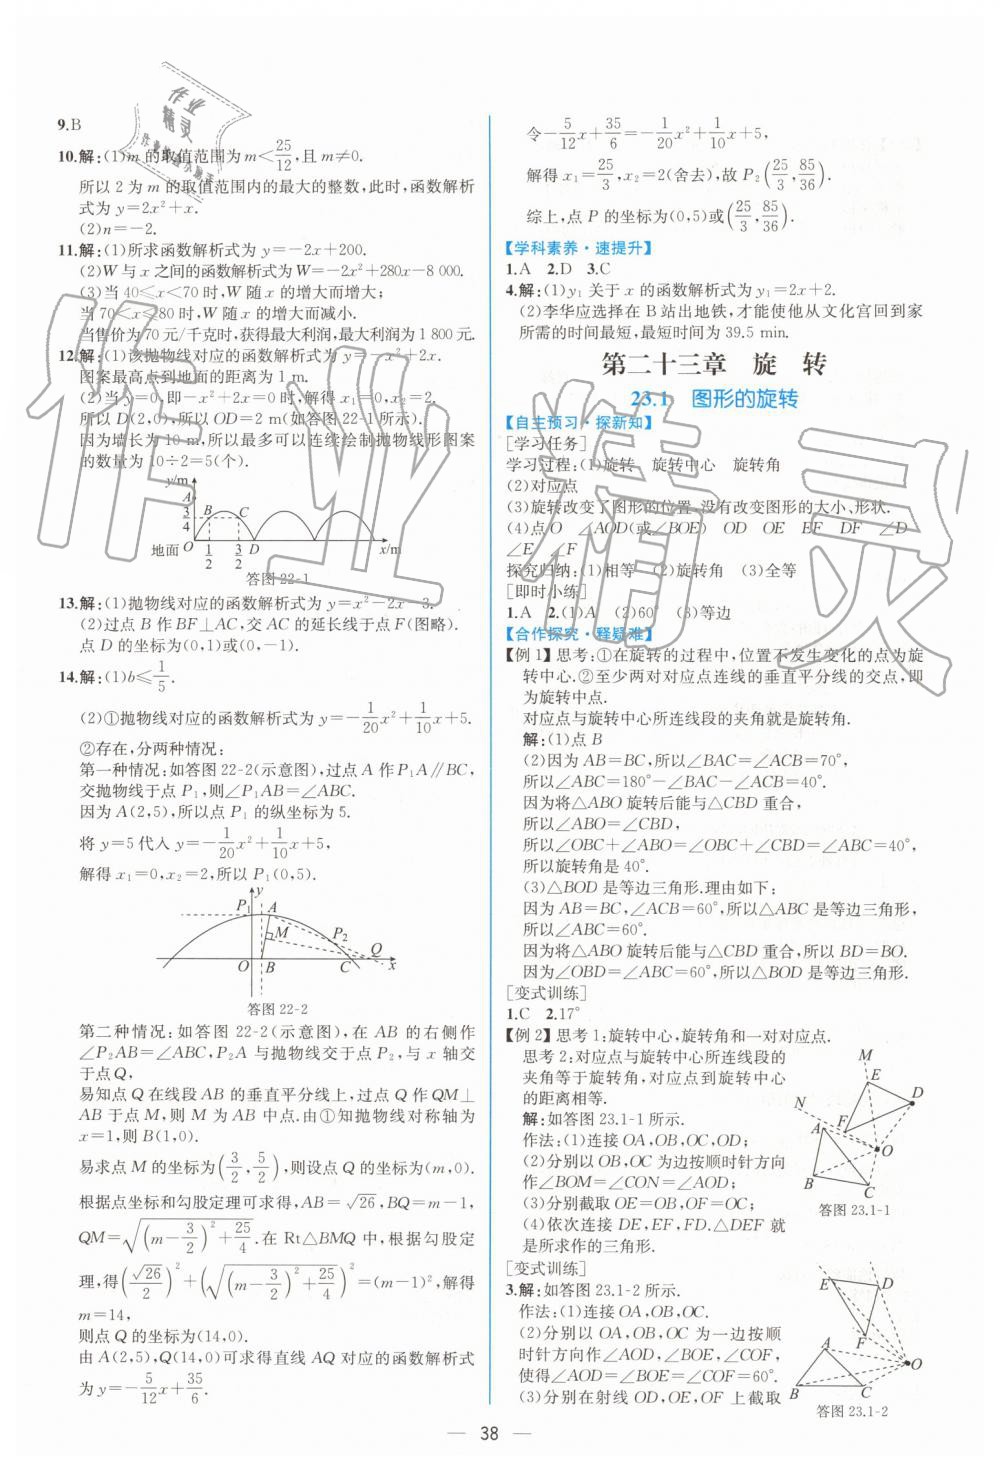 9.B
10.解:(1)m 的取值范围为 m<25/12,且 m≠0.
所以 2 为 m 的取值范围内的最大的整数,此时,函数解析
式为 y=2x²+x.
(2)n=-2.
11.解:(1)所求函数解析式为 y=-2x+200.
(2)W 与 x 之间的函数解析式为 W=-2x²+280x-8 000.
(3)当 40≤x<70 时,W 随 x 的增大而增大;
当 70<x≤80 时,W 随 x 的增大而减小.
当售价为 70 元/千克时,获得最大利润,最大利润为 1 800 元.
12.解:(1)该抛物线对应的函数解析式为 y=-x²+2x.
图案最高点到地面的距离为 1 m.
(2)当 y=0,即-x²+2x=0 时,解得 x₁=0,x₂=2.
所以 D(2,0),所以 OD=2 m(如答图 22-1所示).
因为墙长为 10 m,所以最多可以连续绘制抛物线形图案
的数量为 10÷2=5(个).
y/m
A
3/4 B C
地面 O 1/2 3/2 D x/m
答图 22-1
13.解:(1)抛物线对应的函数解析式为 y=x²-2x-3.
(2)过点 B 作 BF⊥AC,交 AC 的延长线于点 F(图略).
点 D 的坐标为(0,1)或(0,-1).
14.解:(1)b≤1/5.
(2)①抛物线对应的函数解析式为 y=-1/20x²+1/10x+5.
②存在,分两种情况:
第一种情况:如答图 22-2(示意图),过点 A 作 P₁A∥BC,
交抛物线于点 P₁,则∠P₁AB=∠ABC.
因为 A(2,5),所以点 P₁ 的纵坐标为 5.
将 y=5 代入 y=-1/20x²+1/10x+5,
解得 x₁=0,x₂=2,所以 P₁(0,5).
y
P₁ A
M P₂
O B C Q x
答图 22-2
第二种情况:如答图 22-2(示意图),在 AB 的右侧作
∠P₂AB=∠ABC,P₂A 与抛物线交于点 P₂,与 x 轴交
于点 Q,
易知点 Q 在线段 AB 的垂直平分线上,过点 Q 作 QM⊥
AB 于点 M,则 M 为 AB 中点.由①知抛物线对称轴为
x=1,则 B(1,0).
易求点 M 的坐标为(3/2,5/2),则设点 Q 的坐标为(m,0).
根据点坐标和勾股定理可求得,AB=√26,BQ=m-1,
QM=√((m-3/2)²+25/4).在 Rt△BMQ 中,根据勾股定
理,得(√26/2)²+(√((m-3/2)²+25/4))²=(m-1)²,解得
m=14,
则点 Q 的坐标为(14,0).
由 A(2,5),Q(14,0)可求得直线 AQ 对应的函数解析式
为 y=-5/12x+35/6.
令-5/12x+35/6=-1/20x²+1/10x+5,
解得 x₁=25/3,x₂=2(舍去),故 P₂(25/3,85/36).
综上,点 P 的坐标为(0,5)或(25/3,85/36).
【学科素养·速提升】
1.A 2.D 3.C
4.解:(1)y₁ 关于 x 的函数解析式为 y₁=2x+2.
(2)李华应选择在 B 站出地铁,才能使他从文化宫回到家
所需的时间最短,最短时间为 39.5 min.
第二十三章 旋 转
23.1 图形的旋转
【自主预习·探新知】
[学习任务]
学习过程:(1)旋转 旋转中心 旋转角
(2)对应点
(3)旋转改变了图形的位置,没有改变图形的大小、形状.
(4)点 O ∠AOD(或∠BOE) OD OE EF DF ∠D
∠E ∠F
探究归纳:(1)相等 (2)旋转角 (3)全等
[即时小练]
1.A 2.(1)A (2)60° (3)等边
【合作探究·释疑难】
【例 1】思考:①在旋转的过程中,位置不发生变化的点为旋
转中心.②至少两对对应点连线的垂直平分线的交点,即
为旋转中点.
对应点与旋转中心所连线段的夹角就是旋转角.
解:(1)点 B
(2)因为 AB=BC,所以∠BAC=∠ACB=70°,
所以∠ABC=180°-∠BAC-∠ACB=40°.
因为将△ABO 旋转后能与△CBD 重合,
所以∠ABO=∠CBD,
所以∠OBC+∠ABO=∠OBC+∠CBD=∠ABC=40°,
所以旋转角是 40°.
(3)△BOD 是等边三角形.理由如下:
因为 AB=BC,∠ACB=60°,所以△ABC 是等边三角形,
所以∠ABC=60°.
因为将△ABO 旋转后能与△CBD 重合,所以 BD=BO.
因为∠OBD=∠ABC=60°,所以△BOD 是等边三角形.
[变式训练]
1.C 2.17°
【例 2】思考 1:旋转中心,旋转角和一对对应点.
思考 2:对应点与旋转中心所连线段的
夹角等于旋转角,对应点到旋转中心
的距离相等.
解:如答图 23.1-1 所示.
作法:(1)连接 OA,OB,OC,OD;
(2)分别以 OB,OC 为边按顺时针方向
作∠BOM=∠CON=∠AOD;
(3)分别截取 OE=OB,OF=OC;
(4)依次连接 DE,EF,FD.△DEF 就
是所求作的三角形.
M
E
D
N
A F
O
B
C
答图 23.1-1
[变式训练]
3.解:如答图 23.1-2 所示.
作法:(1)连接 OA,OB,OC.
(2)分别以 OA,OB,OC 为一边按顺
时针方向作∠AOD,∠BOE,∠COF,
使得∠AOD=∠BOE=∠COF=60°.
(3)分别在射线 OD,OE,OF 上截取
E D
A F
O
B C
答图 23.1-2
38
作业精灵